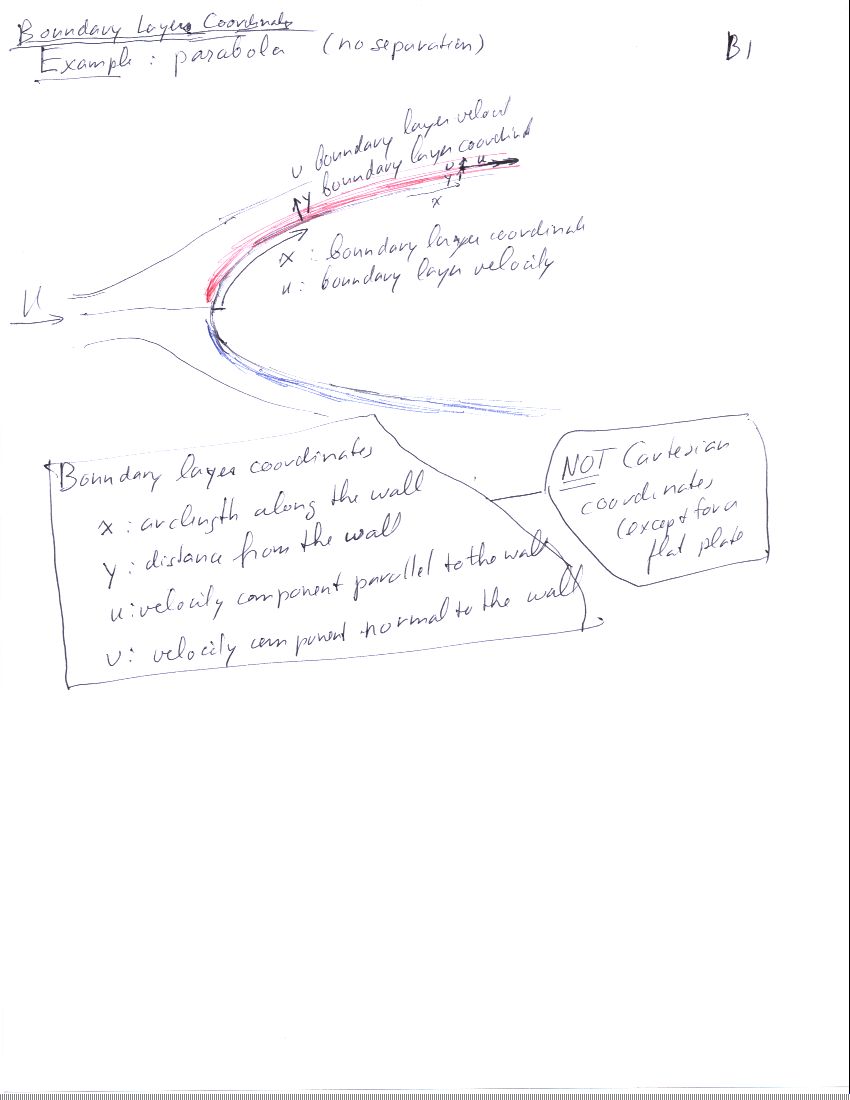 Boundary Layer Coordinates
Example : parabola (no separation)
B1
v boundary layer velocit
y boundary layer coordinat
v u
y
x
y
x : boundary layer coordinate
u : boundary layer velocity
U
Boundary layer coordinates
x : arclength along the wall
y : distance from the wall
u : velocity component parallel to the wall
v : velocity component normal to the wall
NOT Cartesian
coordinates
(except for a
flat plate